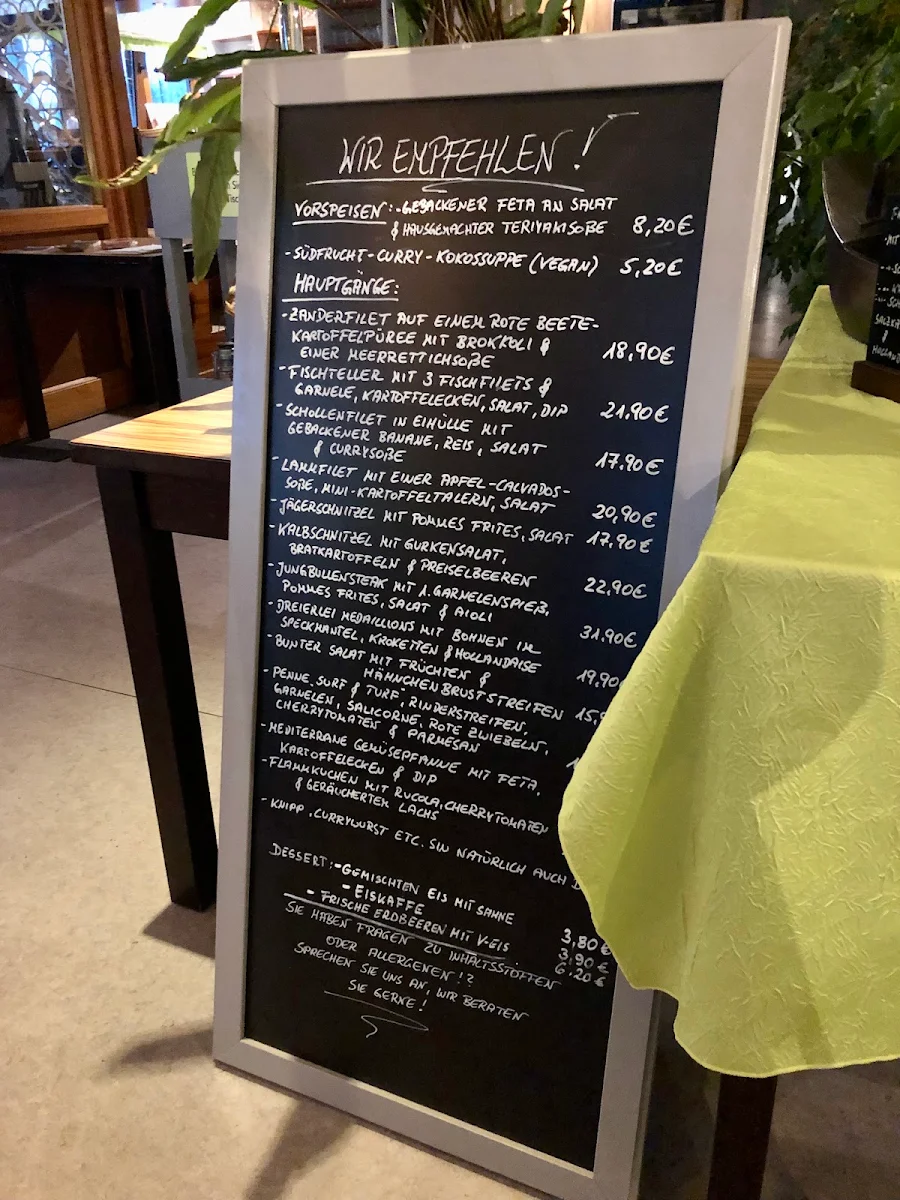 WIR EMPFEHLEN!
VORSPEISEN: -GEBACKENER FETA AN SALAT
& HAUSGEMACHTER TERIYAKISOßE 8,20€
-SÜDFRUCHT-CURRY-KOKOSSUPPE (VEGAN) 5,20€
HAUPTGÄNGE:
-ZANDERFILET AUF EINEM ROTE BEETE-
KARTOFFELPÜREE MIT BROKKOLI &
EINER MEERRETTICHSOßE 18,90€
-FISCHTELLER MIT 3 FISCHFILETS &
GARNELE, KARTOFFELECKEN, SALAT, DIP 21.90€
-SCHOLLENFILET IN EIHÜLLE MIT
GEBACKENER BANANE, REIS, SALAT
& CURRYSOßE 17.90€
-LAMMFILET MIT EINER APFEL-CALVADOS-
SOßE, MINI-KARTOFFELTALERN, SALAT 20,90€
-JÄGERSCHNITZEL MIT POMMES FRITES, SALAT 17.90€
-KALBSCHNITZEL MIT GURKENSALAT,
BRATKARTOFFELN & PREISELBEEREN 22,90€
-JUNGBULLENSTEAK MIT 1. GARNELENSPIEß,
POMMES FRITES, SALAT & AIOLI 31.90€
-DREIERLEI MEDAILLIONS MIT BOHNEN IM
SPECKMANTEL, KROKETTEN & HOLLANDAISE 19,90
-BUNTER SALAT MIT FRÜCHTEN &
HÄHNCHENBRUSTSTREIFEN 15,9
-PENNE "SURF & TURF", RINDERSTREIFEN,
GARNELEN, SALICORNE, ROTE ZWIEBELN,
CHERRYTOMATEN & PARMESAN 1
-MEDITERRANE GEMÜSEPFANNE MIT FETA,
KARTOFFELECKEN & DIP
-FLAMMKUCHEN MIT RUCOLA, CHERRYTOMATEN
& GERÄUCHERTEM LACHS
-KNIPP, CURRYWURST ETC. SIND NATÜRLICH AUCH D
DESSERT: -GEMISCHTEN EIS MIT SAHNE 3,80€
-EISKAFFE 3,90€
-FRISCHE ERDBEEREN MIT V-EIS 6.20€
SIE HABEN FRAGEN ZU INHALTSSTOFFEN
ODER ALLERGENEN!?
SPRECHEN SIE UNS AN, WIR BERATEN
SIE GERNE!